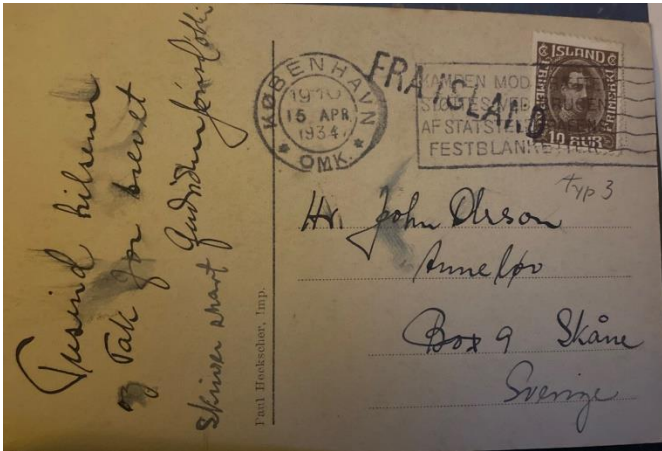 Tusind hilsener
og Tak for brevet
skriver snart
Paul Heckscher, Imp.
KØBENHAVN
15 APR.
1934
OMK.
FRA ISLAND
KAMPEN MOD
STØTTES VED BRUGEN
AF STATSTELEGRAFENS
FESTBLANKETTER
ISLAND
FRIMERKI
10 AUR
typ 3
Hr. John Olsson
Anneløv
Box 9 Skåne
Sverige